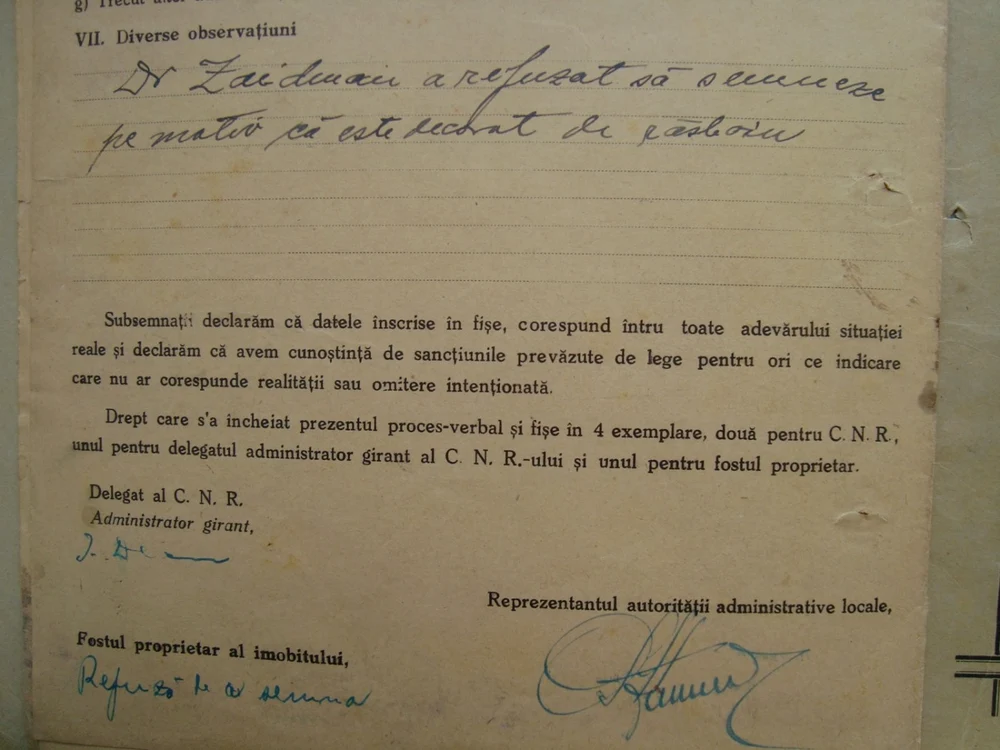 g) Trecut
VII. Diverse observațiuni
Dr Zaidman a refuzat să semneze
pe motiv că este decorat de răsboiu
Subsemnații declarăm că datele înscrise în fișe, corespund întru toate adevărului situației
reale și declarăm că avem cunoștință de sancțiunile prevăzute de lege pentru ori ce indicare
care nu ar corespunde realității sau omitere intenționată.
Drept care s'a incheiat prezentul proces-verbal și fișe în 4 exemplare, două pentru C. N. R.,
unul pentru delegatul administrator girant al C. N. R.-ului și unul pentru fostul proprietar.
Delegat al C. N. R.
Administrator girant,
Reprezentantul autorității administrative locale,
Fostul proprietar al imobitului,
Refuză de a semna